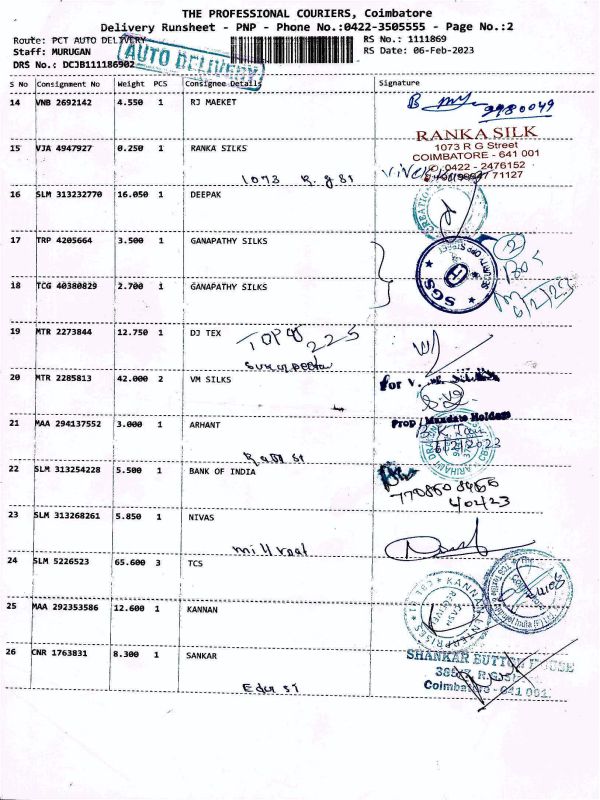 THE PROFESSIONAL COURIERS, Coimbatore
Delivery Runsheet - PNP - Phone No.:0422-3505555 - Page No.:2
Route: PCT AUTO DELIVERY
RS No.: 1111869
Staff: MURUGAN
RS Date: 06-Feb-2023
DRS No.: DCJB111186902
AUTO DELIVERY
S No Consignment No Weight PCS Consignee Details Signature
14 VNB 2692142 4.550 1 RJ MAEKET
9980049
15 VJA 4947927 0.250 1 RANKA SILKS
RANKA SILK
1073 R G Street
COIMBATORE - 641 001
0422 - 2476152
71127
1073 R. g St
16 SLM 313232770 16.050 1 DEEPAK
17 TRP 4205664 3.500 1 GANAPATHY SILKS
SGS
2
Box
6/2/23
18 TCG 40380829 2.700 1 GANAPATHY SILKS
19 MTR 2273844 12.750 1 DJ TEX
225
20 MTR 2285813 42.000 2 VM SILKS
for V. M. Silks
Prop / Mandate Holders
21 MAA 294137552 3.000 1 ARHANT
6/2/2023
22 SLM 313254228 5.500 1 BANK OF INDIA
40423
23 SLM 313268261 5.850 1 NIVAS
mill road
24 SLM 5226523 65.600 3 TCS
25 MAA 292353586 12.600 1 KANNAN
KANNAN ENTERPRISES * CBE
26 CNR 1763831 8.300 1 SANKAR
SHANKAR BUTTON HOUSE
Coimbatore - 641 001